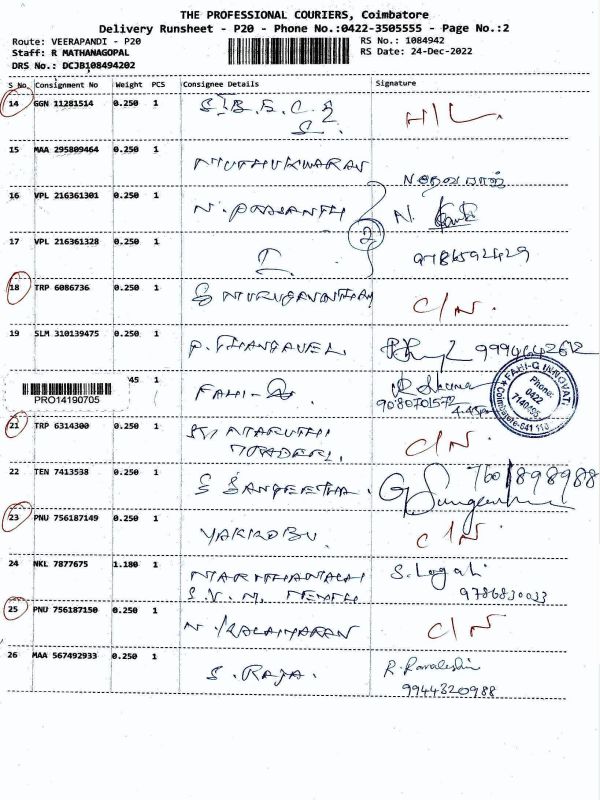 THE PROFESSIONAL COURIERS, Coimbatore
Delivery Runsheet - P20 - Phone No.:0422-3505555 - Page No.:2
Route: VEERAPANDI - P20 RS No.: 1084942
Staff: R MATHANAGOPAL RS Date: 24-Dec-2022
DRS No.: DCJB108494202
S No. Consignment No Weight PCS Consignee Details Signature
14 GGN 11281514 0.250 1
15 MAA 295809464 0.250 1 MUTHUKUMARAN
16 VPL 216361301 0.250 1 N. PRASANTH N.
2
17 VPL 216361328 0.250 1 9786592429
18 TRP 6086736 0.250 1 S MURUGANANTHAM C/N.
19 SLM 310139475 0.250 1 P. THANGAVEL 9994642612
45 0.250 1 FAHI-Q R Sharma
PRO14190705 9080701572 4.45pm
FAHI-Q INNOVATI
Phone: 0422
Coimbatore-641 110
21 TRP 6314300 0.250 1 SRI MARUTHI C/N.
TRADERS.
22 TEN 7413538 0.250 1 S SANGEETHA. 7601898988
23 PNU 756187149 0.250 1 YAKKOBU. C/N.
24 NKL 7877675 1.180 1 S. Logah
S.V.M. 9786830033
25 PNU 756187150 0.250 1 N. KALAIMARAN C/N
26 MAA 567492933 0.250 1 S. RAJA. R.
9944320988